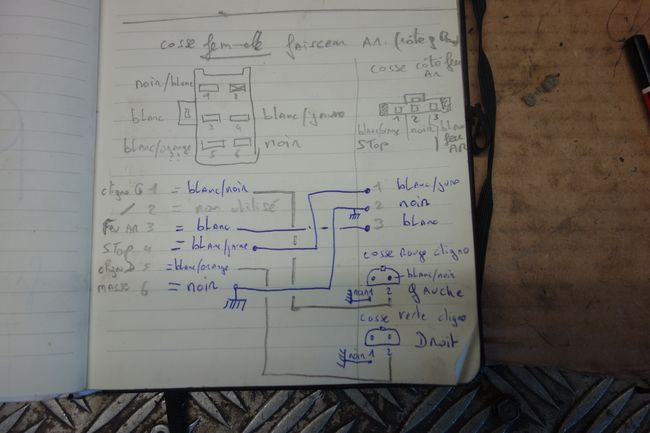 cosse femelle faisceau AR. (côté g
cosse côté feu
AR
noir/blanc
1 2
blanc
3 4
blanc/jaune
blanc/orange
??
5 6
noir
1 2 3
blanc/orange noir blanc
STOP
feu
AR
cligno G 1 = blanc/noir
2 = non utilisé
Feu AR 3 = blanc
STOP 4 = blanc/jaune
cligno D 5 = blanc/orange
masse 6 = noir
1 blanc/jaune
2 noir
3 blanc
cosse Rouge cligno
blanc/noir
noir 1 2
Gauche
cosse verte cligno
noir 1 2
Droit